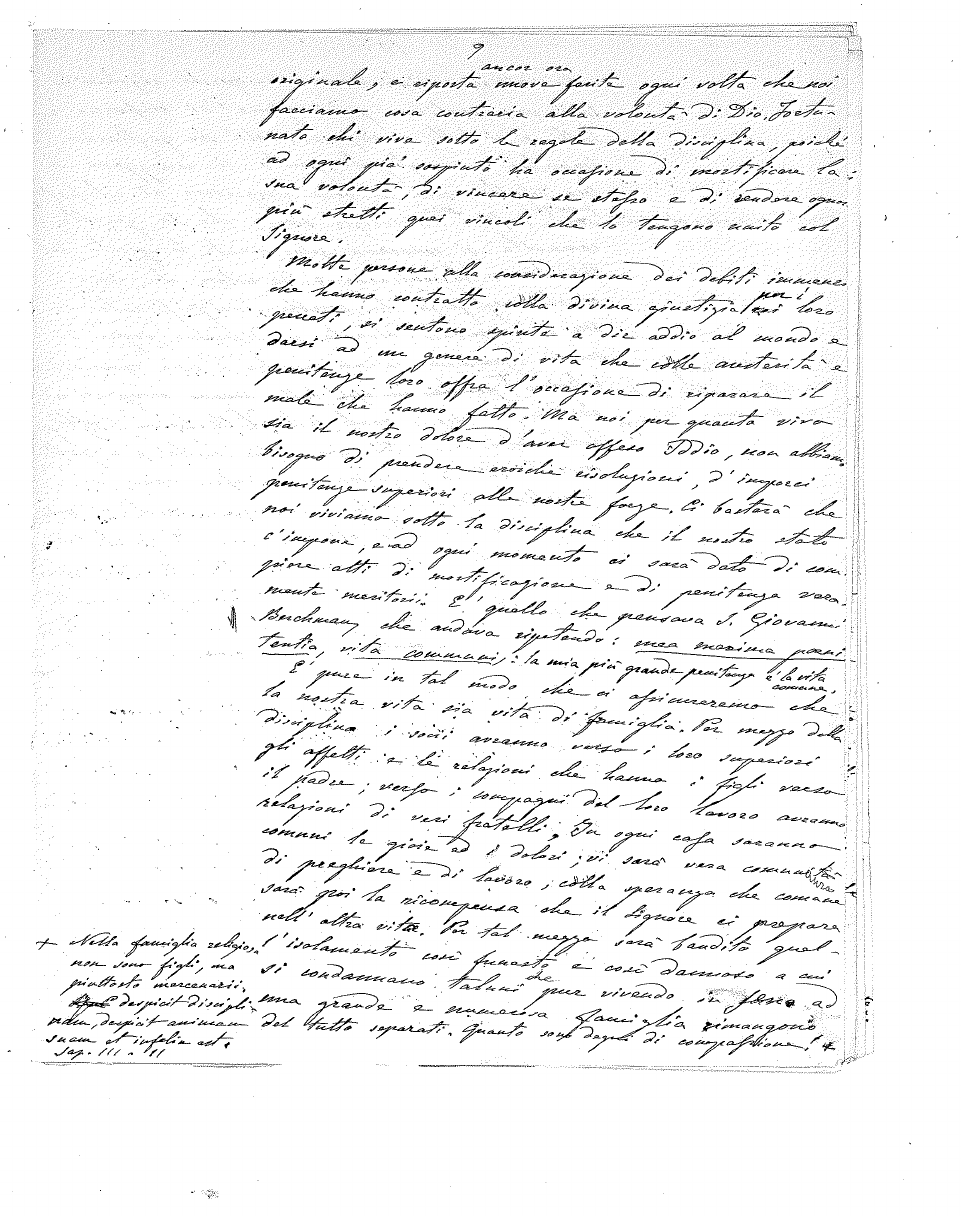 9
ancor ora
originale; e riporta nuove ferite ogni volta che noi
facciamo cosa contraria alla volontà di Dio. Fortu-
nato chi vive sotto le regole della disciplina, poiché
ad ogni piè sospinto ha occasione di mortificare la
sua volontà, di vincere se stesso e di rendere ognor
più stretti quei vincoli che lo tengono unito col
Signore.
Molte persone alla considerazione dei debiti immensi
che hanno contratto colla divina giustizia per i loro
peccati, si sentono spinte a dir addio al mondo e
darsi ad un genere di vita che colle austerità e
penitenze loro offra l'occasione di riparare il
male che hanno fatto. Ma noi per quanto vivo
sia il nostro dolore d'aver offeso Iddio, non abbiamo
bisogno di prendere eroiche risoluzioni, d'imporci
penitenze superiori alle nostre forze. Ci basterà che
noi viviamo sotto la disciplina che il nostro stato
c'impone, e ad ogni momento ci sarà dato di com-
piere atti di mortificazione e di penitenza vera-
mente meritorii. E' quello che pensava S. Giovanni
Berchmans che andava ripetendo: mea maxima poeni
tentia, vita communis: la mia più grande penitenza è la vita
comune.
E' pure in tal modo che ci assicureremo che
la nostra vita sia vita di famiglia. Per mezzo della
disciplina i socii avranno verso i loro superiori
gli affetti e le relazioni che hanno i figli verso
il padre; verso i compagni del loro lavoro avranno
relazioni di veri fratelli. In ogni casa saranno
comuni le gioie ed i dolori; vi sarà vera comunità
di preghiere e di lavoro; colla speranza che comune
sarà poi la ricompensa che il Signore ci prepara
nell'altra vita. Per tal mezzo sarà bandito quel-
l'isolamento così funesto e così dannoso a cui
si condannano taluni che pur vivendo in ad
una grande e numerosa famiglia rimangono
del tutto separati. Quanto sono degni di compassione! +
+ Nella famiglia religiosa
non sono figli, ma
piuttosto mercenarii.
despicit discipli-
nam, despicit animam
suam et infelix est.
Sap. III - 11